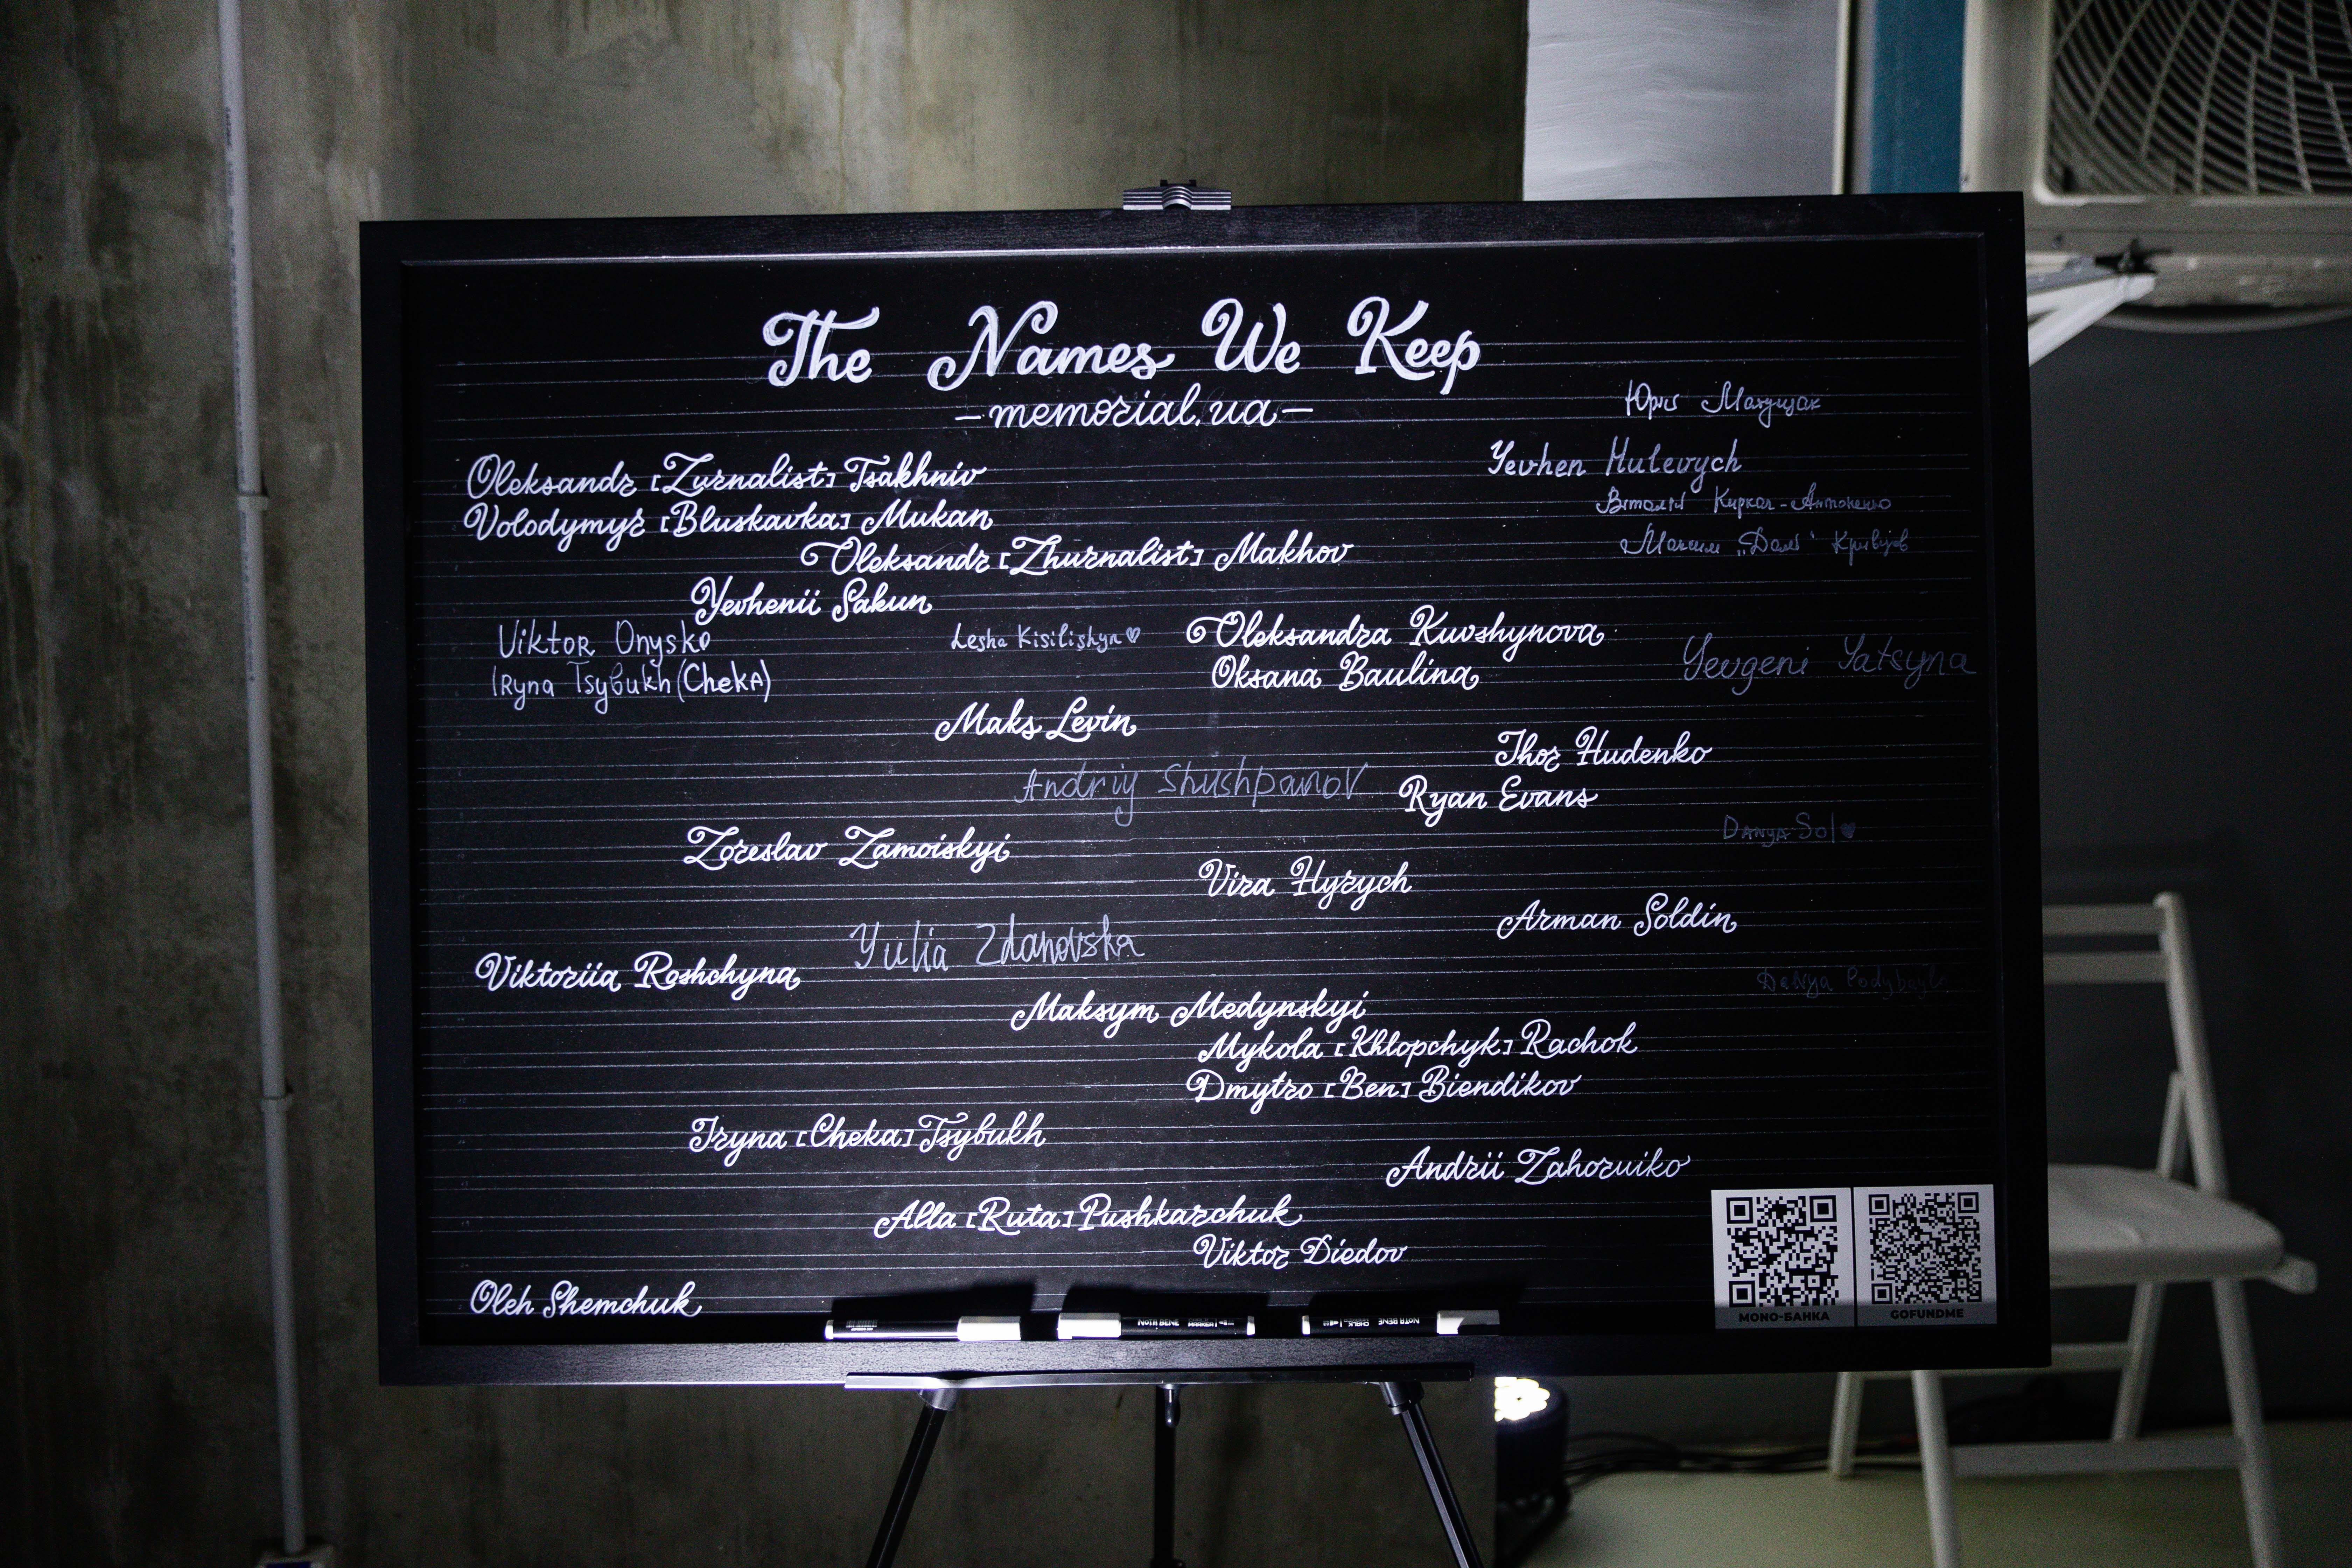 The Names We Keep
—memorial.ua—
Юрій
Yevhen Hulevych
Віталій Киркач-Антоненко
Максим „Далі“ Кривцов
Oleksandr [Zurnalist] Tsakhniv
Volodymyr [Bluskavka] Mukan
Oleksandr [Zhurnalist] Makhov
Yevhenii Sakun
Viktor Onysko
Lesha Kisilishyn
Oleksandra Kuvshynova
Iryna Tsybukh (Cheka)
Oksana Baulina
Yevgeni Yatsyna
Maks Levin
Ihor Hudenko
Andriy Shushpanov
Ryan Evans
Danya Sol
Zoreslav Zamoiskyi
Vira Hyrych
Arman Soldin
Yulia Zdanovska
Viktoriia Roshchyna
Danya
Maksym Medynskyi
Mykola [Khlopchyk] Rachok
Dmytro [Ben] Biendikov
Iryna [Cheka] Tsybukh
Andrii Zahoruiko
Alla [Ruta] Pushkarchuk
Viktor Diedov
Oleh Shemchuk
МОНО-БАНКА
GOFUNDME